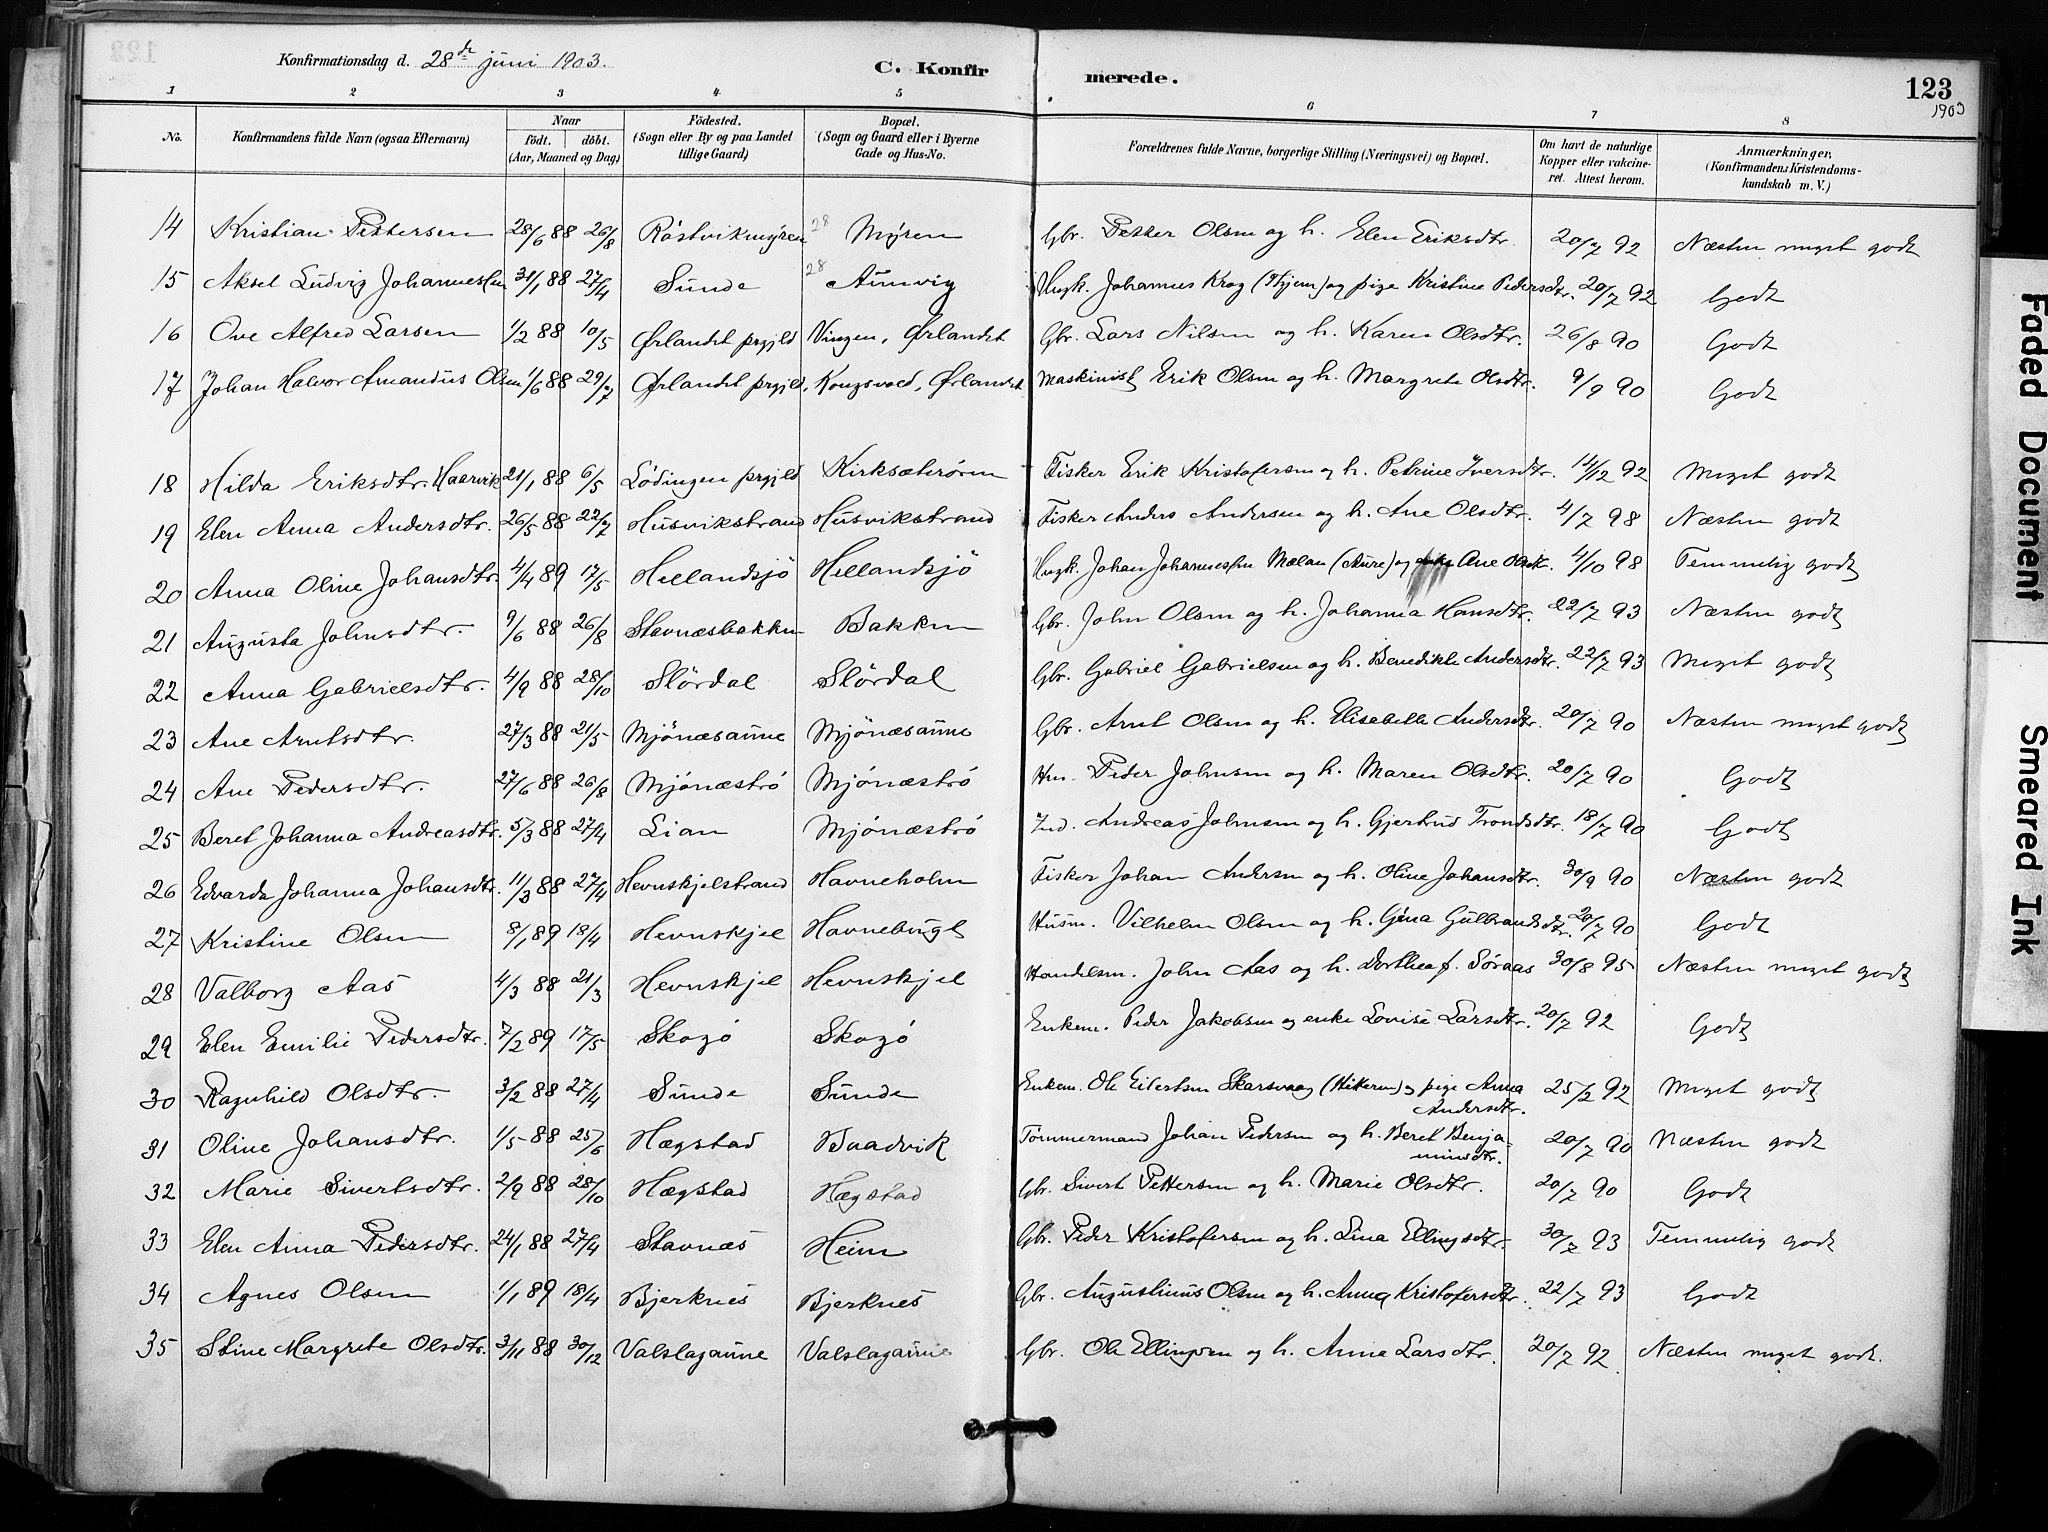 Konfirmationsdag d. 28de juni 1903.
C. Konfirmerede.
123
1903
1 2 3 4 5 6 7 8
No. Konfirmandens fulde Navn (ogsaa Efternavn) Naar født. døbt. (Aar, Maaned og Dag) Födested. (Sogn eller By og paa Landet tillige Gaard) Bopæl. (Sogn og Gaard eller i Byerne Gade og Hus-No. Forældrenes fulde Navne, borgerlige Stilling (Næringsvei) og Bopæl. Om havt de naturlige Kopper eller vakcineret. Attest herom. Anmærkninger. (Konfirmandens Kristendomskundskab m. V.)
14 Kristian Pettersen 28/6 88 26/8 Röstvikmyren 28 Myren Gbr. Petter Olsen og h. Elen Eriksdtr. 20/7 92 Næsten meget godt
15 Aksel Ludvig Johannessen 31/1 88 27/4 Sunde 28 Aunvig Ungk. Johannes Krog (Hjem) og pige Kristine Pedersdtr. 20/7 92 Godt
16 Ove Alfred Larsen 1/2 88 10/5 Ørlandet prgjld Vingen, Ørlandet Gbr. Lars Nilsen og h. Karen Olsdtr. 26/8 90 Godt
17 Johan Halvor Amandus Olsen 1/6 88 29/7 Ørlandet prgjld, Kongsvold, Ørlandet Maskinist Erik Olsen og h. Margrete Olsdtr. 9/9 90 Godt
18 Hilda Eriksdtr. Haarvik 21/1 88 6/5 Lødingen prgjld Kirksæterøren Fisker Erik Kristofersen og h. Petrine Iversdtr. 14/12 92 Meget godt
19 Elen Anna Andersdtr. 26/5 88 22/7 Husvikstrand Husvikstrand Fisker Anders Andersen og h. Ane Olsdtr. 4/7 98 Næsten godt
20 Anna Oline Johansdtr. 4/4 89 17/5 Hellandsjö Hellandsjö Ungk. Johan Johannessen Mælan (Aure) og Ane Olsdtr. 4/10 98 Temmelig godt
21 Augusta Johnsdtr. 9/6 88 26/8 Stavnæsbakken Bakken Gbr. John Olsen og h. Johanna Hansdtr. 22/7 93 Næsten godt
22 Anna Gabrielsdtr. 4/9 88 28/10 Slördal Slördal Gbr. Gabriel Gabrielsen og h. Benedikte Andersdtr. 22/7 93 Meget godt
23 Ane Arntsdtr. 27/3 88 21/5 Mjönæsaune Mjönæsaune Gbr. Arnt Olsen og h. Elisabeth Andersdtr. 20/7 90 Næsten meget godt
24 Ane Pedersdtr. 27/6 88 26/8 Mjönæströ Mjönæströ Hm. Peder Johnsen og h. Maren Olsdtr. 20/7 90 Godt
25 Beret Johanna Andreasdtr. 5/3 88 27/4 Lian Mjönæströ Ind. Andreas Johnsen og h. Gjertrud Trondsdtr. 18/7 90 Godt
26 Edvarda Johanna Johansdtr. 11/3 88 27/4 Hevnskjelstrand Havneholm Fisker Johan Andersen og h. Oline Johansdtr. 30/9 90 Næsten godt
27 Kristine Olsen 8/1 89 18/4 Hevnskjel Havneburgt Husm. Vilhelm Olsen og h. Gina Gulbrandsdtr. 20/7 90 Godt
28 Valborg Aas 4/3 88 21/3 Hevnskjel Hevnskjel Handelsm. John Aas og h. Dorthea f. Söraas 30/8 95 Næsten meget godt
29 Elen Emilie Pedersdtr. 7/2 89 17/5 Skogö Skogö Enkem. Peder Jakobsen og enke Lovise Larsdtr. 20/7 92 Godt
30 Ragnhild Olsdtr. 3/2 88 27/4 Sunde Sunde Enkem. Ole Eilertsen Skarsvaag (Hitteren) og pige Anna Andersdtr. 25/2 92 Meget godt
31 Oline Johansdtr. 1/5 88 25/6 Hægstad Baadvik Tømmermand Johan Pedersen og h. Beret Benjaminsdtr. 20/7 90 Næsten godt
32 Marie Sivertsdtr. 2/9 88 28/10 Hægstad Hægstad Gbr. Sivert Pettersen og h. Marie Olsdtr. 20/7 90 Godt
33 Elen Anna Pedersdtr. 24/1 88 27/4 Stavnæs Heim Gbr. Peder Kristofersen og h. Lina Ellingsdtr. 30/7 93 Temmelig godt
34 Agnes Olsen 1/1 89 18/4 Bjerknes Bjerknes Gbr. Augustinus Olsen og h. Anna Kristofersdtr. 22/7 93 Godt
35 Stine Margrete Olsdtr. 3/11 88 30/12 Valslagaune Valslagaune Gbr. Ole Ellingsen og h. Anne Larsdtr. 20/7 92 Næsten meget godt.
Faded Document
Smeared Ink